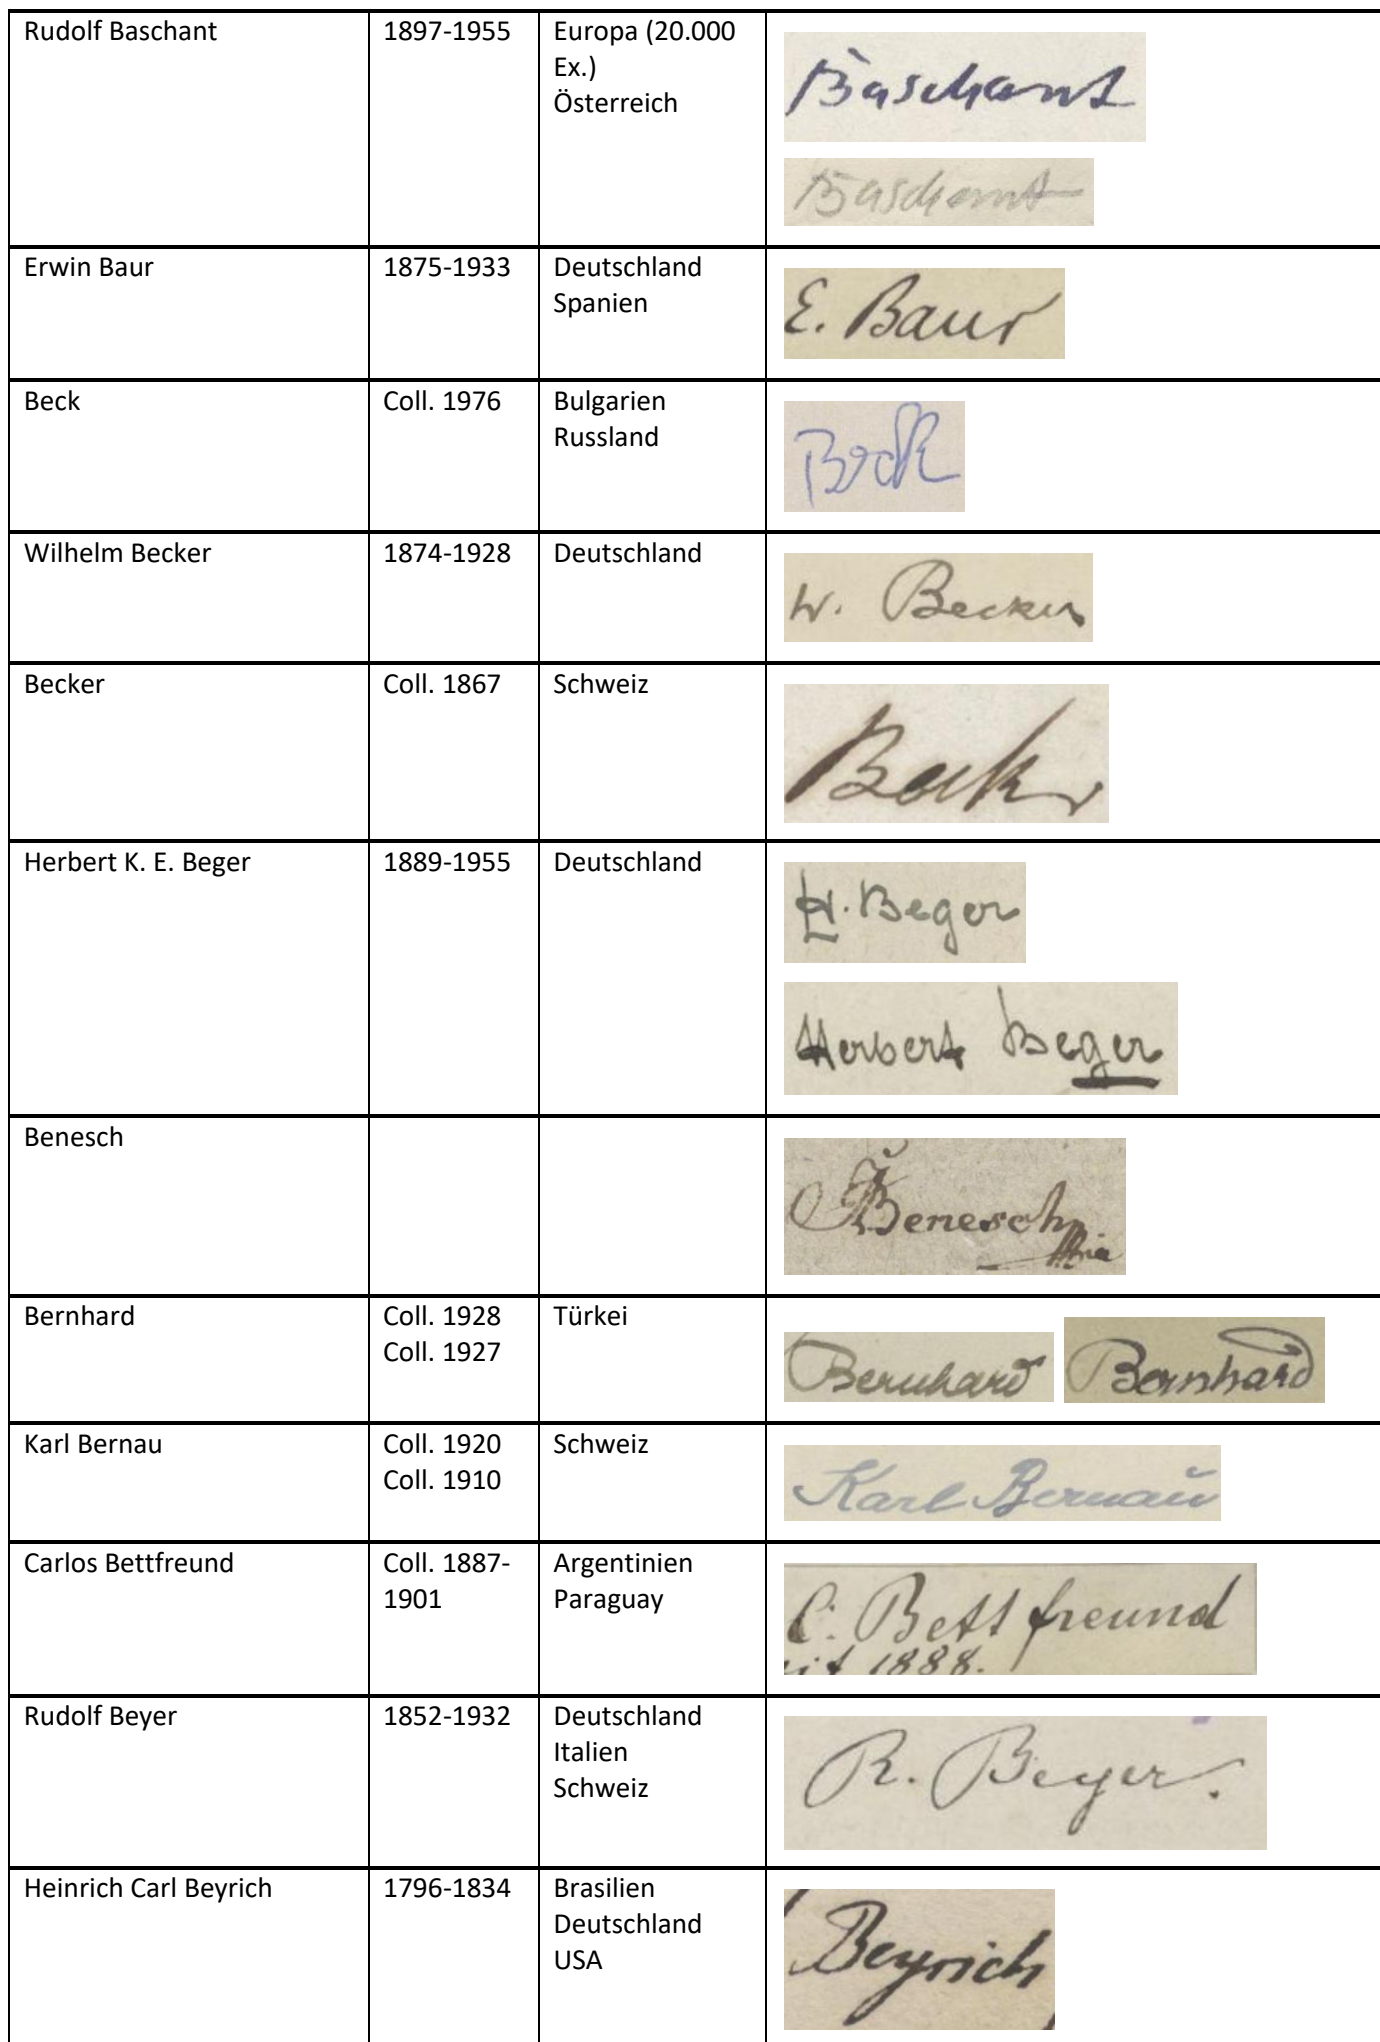 Rudolf Baschant
1897-1955
Europa (20.000
Ex.)
Österreich
Baschant
Baschant
Erwin Baur
1875-1933
Deutschland
Spanien
E. Baur
Beck
Coll. 1976
Bulgarien
Russland
Beck
Wilhelm Becker
1874-1928
Deutschland
W. Becker
Becker
Coll. 1867
Schweiz
Becker
Herbert K. E. Beger
1889-1955
Deutschland
H. Beger
Herbert Beger
Benesch
Benesch
Bernhard
Coll. 1928
Coll. 1927
Türkei
Bernhard Bernhard
Karl Bernau
Coll. 1920
Coll. 1910
Schweiz
Karl Bernau
Carlos Bettfreund
Coll. 1887-
1901
Argentinien
Paraguay
C. Bettfreund
1888.
Rudolf Beyer
1852-1932
Deutschland
Italien
Schweiz
R. Beyer.
Heinrich Carl Beyrich
1796-1834
Brasilien
Deutschland
USA
Beyrich